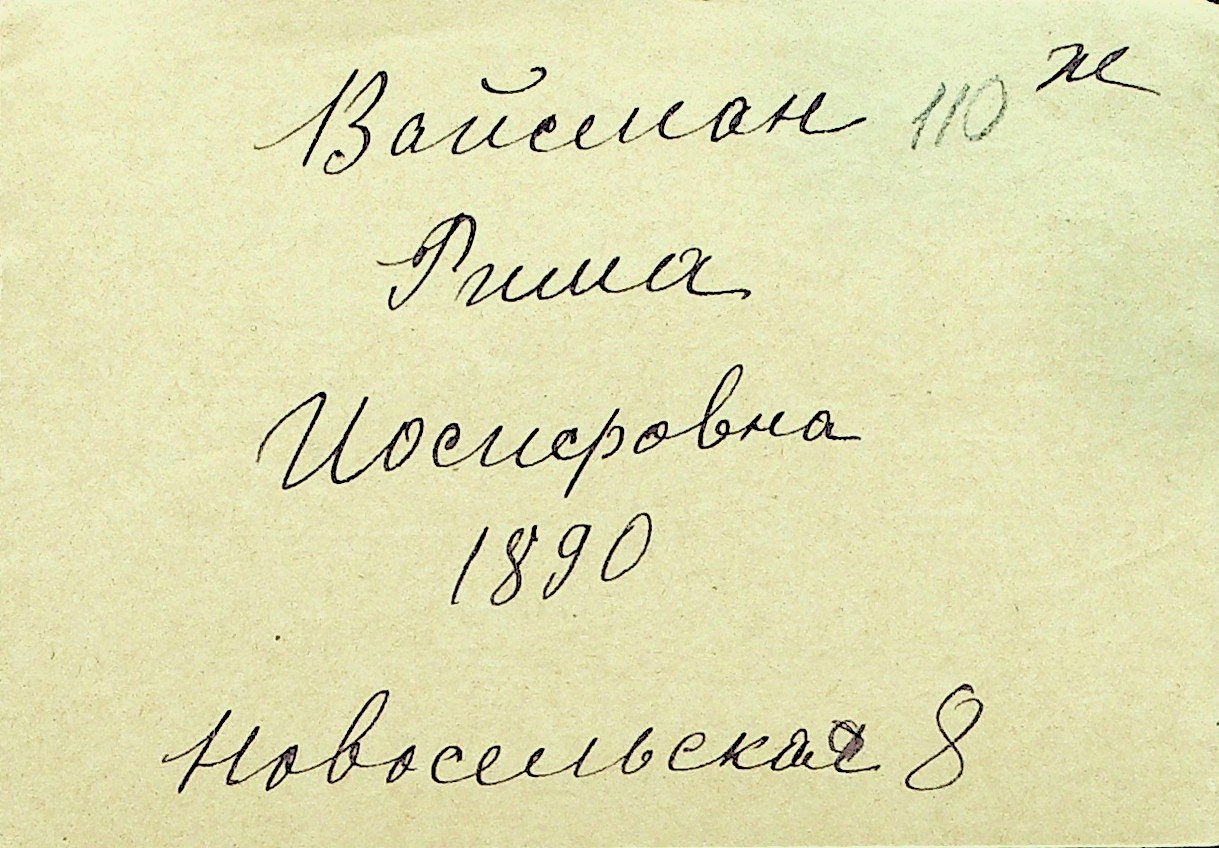 Вайсман 110 ж
Рима
Иосифовна
1890
Новосельская 8